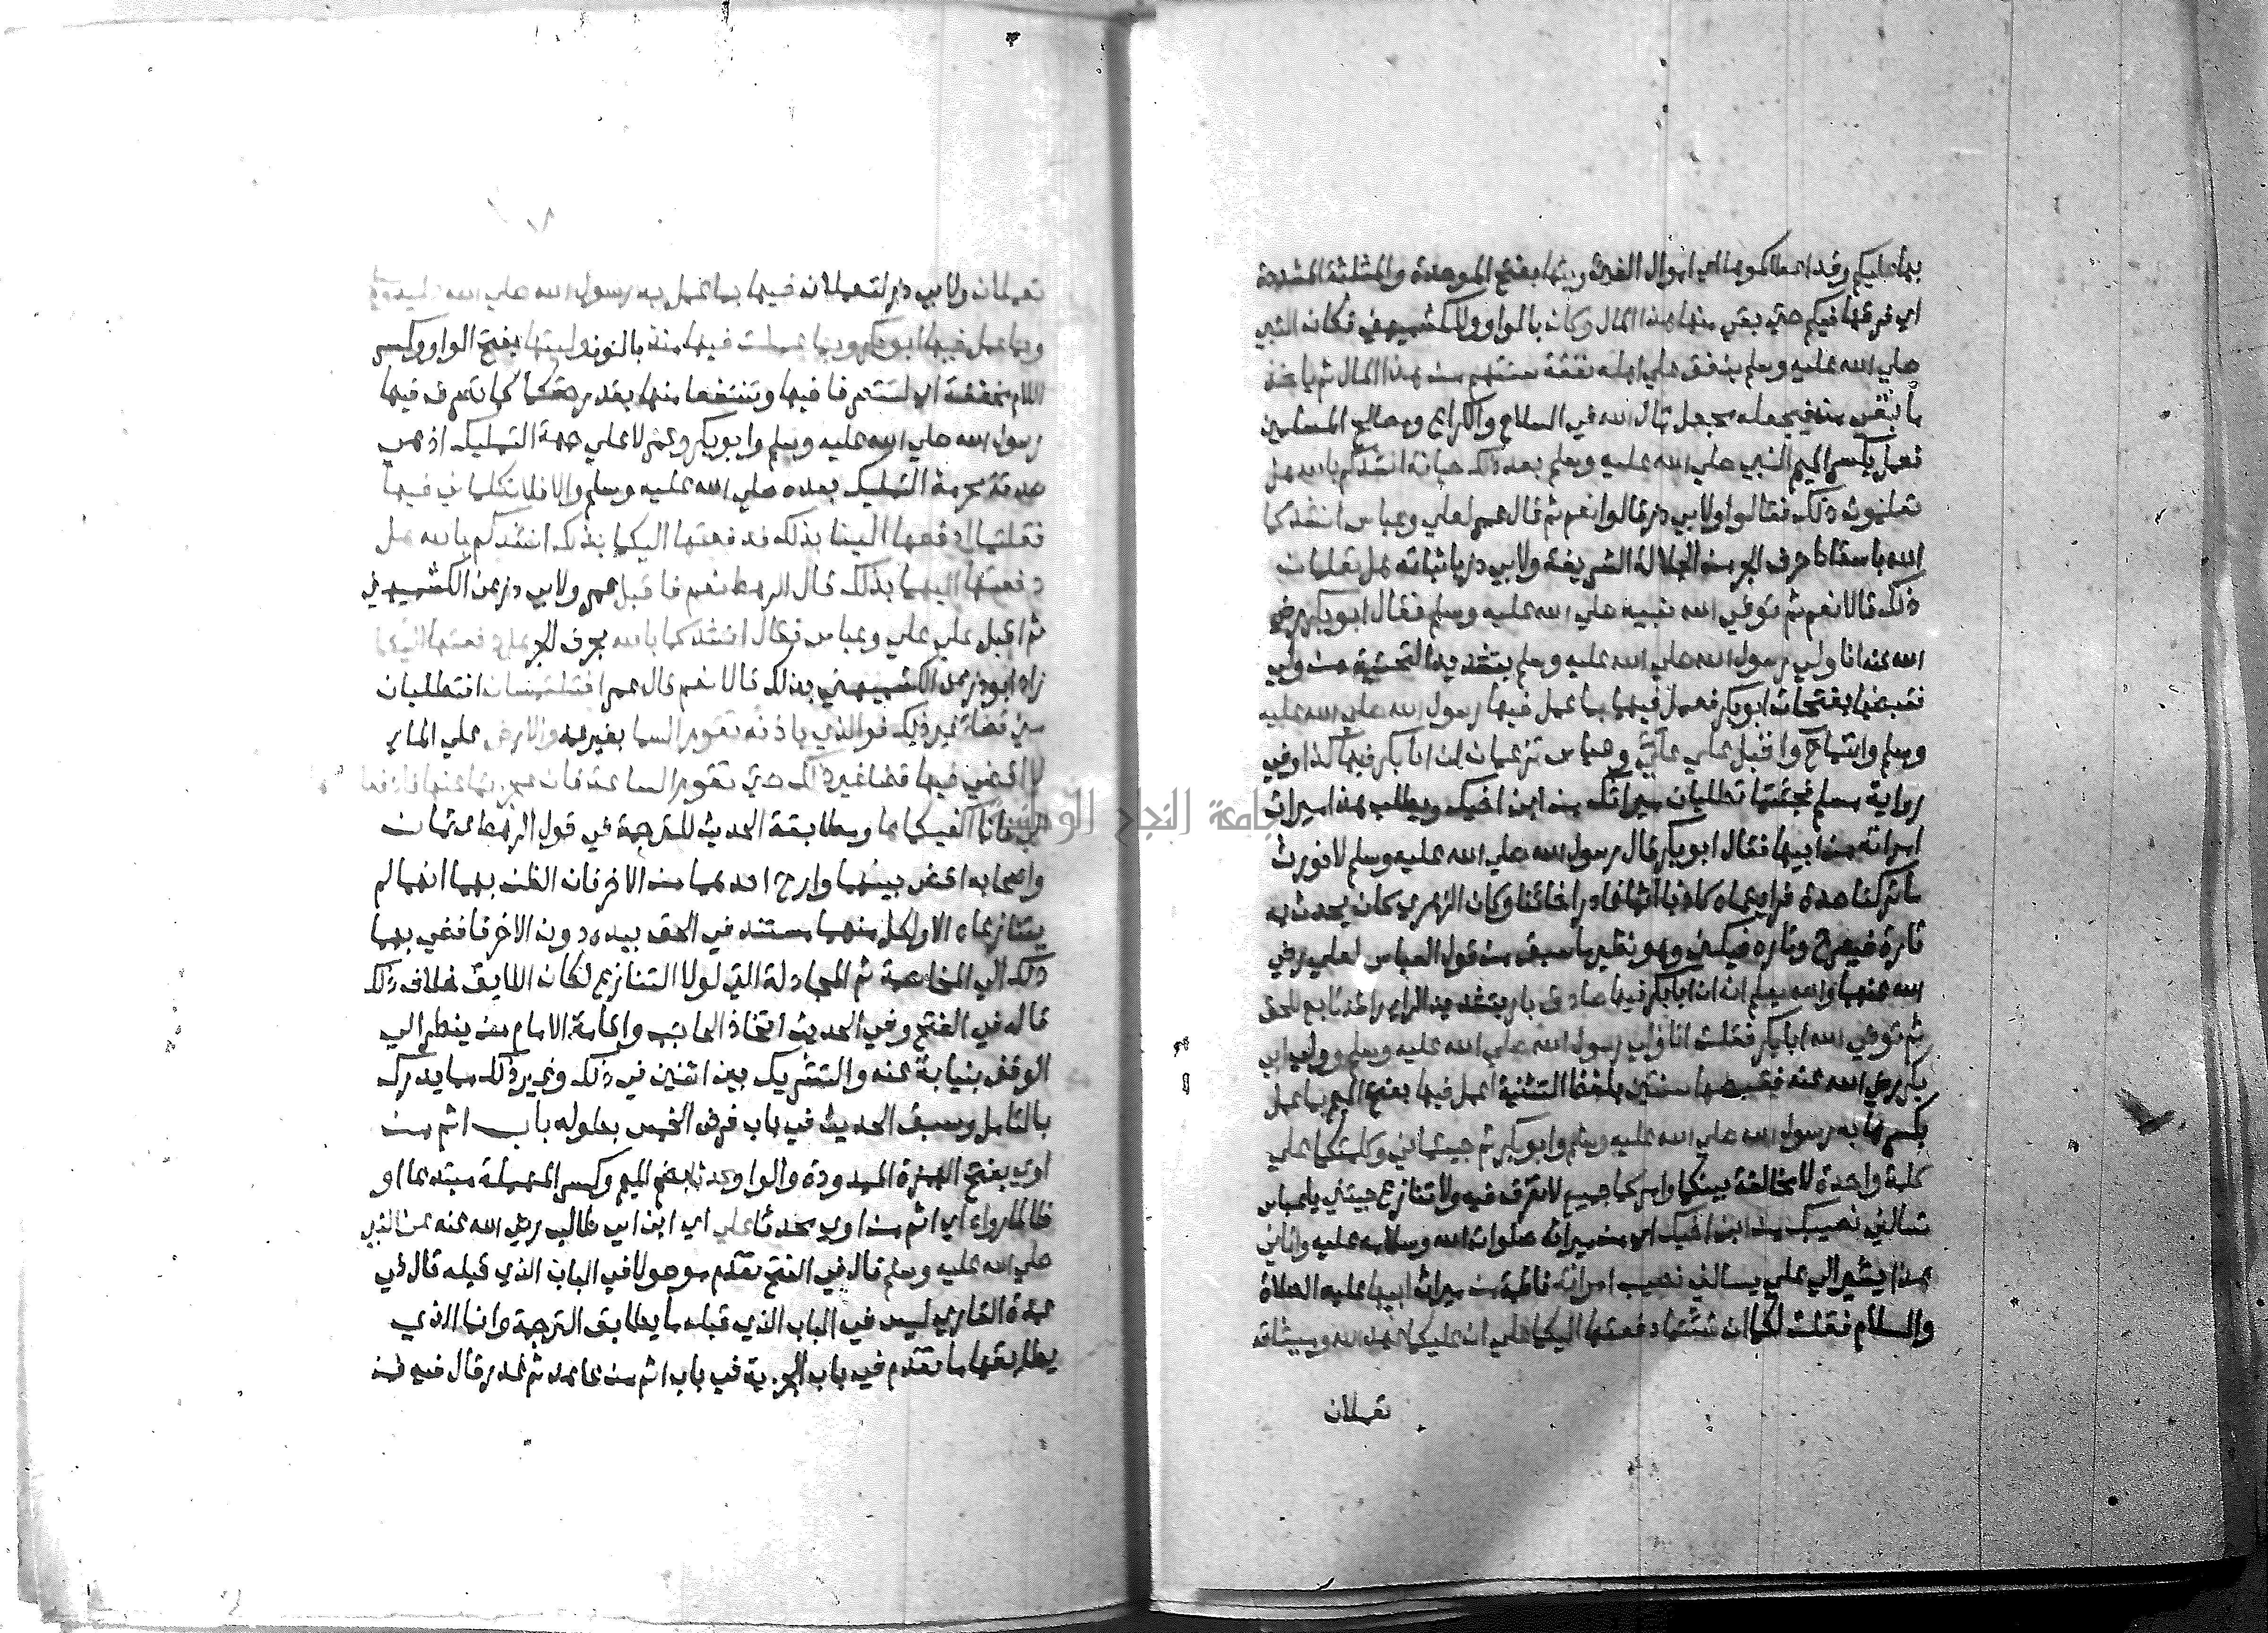 بها عليكم وقد اعطاكموها اي اموال الفي وبثها بفتح الموحدة والمثلثة المشددة
اي فرقها فيكم حتي بقي منها هذا المال وكان بالواو وللكشميهني فكان النبي
صلي الله عليه وسلم ينفق علي اهله نفقة سنتهم من هذا المال ثم ياخذ
ما بقي منه فيجعله مجعل مال الله في السلاح والكراع ومصالح المسلمين
فعمل بكسر الميم النبي صلي الله عليه وسلم بعد ذلك حياته انشدكم بالله هل
تعلمون ذلك فقالوا ولابي ذر قالوا نعم ثم قال عمر لعلي وعباس انشدكما
الله باسقاط حرف الجر من الجلالة الشريفة ولابي ذر باثباته هل تعلمان
ذلك قالا نعم ثم توفي الله نبيه صلي الله عليه وسلم فقال ابو بكر رضي
الله عنه انا ولي رسول الله صلي الله عليه وسلم بتشديد التحتية من ولي
فقبضها بفتحات ابو بكر فعمل فيها بما عمل فيها رسول الله صلي الله عليه
وسلم وانتما واقبل علي علي وعباس تزعمان ان ابا بكر فيها كذا وفي
رواية مسلم فجئتما تطلبان ميراثك من ابن اخيك ويطلب هذا ميراث
امراته من ابيها فقال ابو بكر قال رسول الله صلي الله عليه وسلم لا نورث
ما تركنا صدقة فرايتماه كاذبا اثما غادرا خائنا وكان الزهري كان يحدث به
تارة فيصرح وتاره فيكني وهو نظير ما سبق من قول العباس لعلي رضي
الله عنهما والله يعلم انه ابا بكر فيها صادق بار بتشديد الراء راشد تابع للحق
ثم توفي الله ابا بكر فقلت انا ولي رسول الله صلي الله عليه وسلم وولي ابي
بكر رضي الله عنه فقبضتها سنتين بلفظ التثنية اعمل فيها بفتح الميم بما عمل
بكسرها به رسول الله صلي الله عليه وسلم وابو بكر ثم جيتماني وكلمتكما علي
كلمة واحدة لا مخالفة بينكما وامركما جميع لا تفرق فيه ولا تنازع جيتني يا عباس
تسالني نصيبك من ابن اخيك اي من ميراثه صلوات الله وسلامه عليه واتاني
هذا يشير الي علي يسالني نصيب امراته فاطمة من ميراث ابيها عليه الصلاة
والسلام فقلت لكما ان شئتما دفعتها اليكما علي ان عليكما عهد الله وميثاقه
تعملان
تعملان ولابي ذر لتعملان فيها بما عمل به رسول الله صلي الله عليه وسلم
وبما عمل فيها ابو بكر وبما عملت فيها منذ بالنون وليتها بفتح الواو وكسر
اللام مخففة اي لتتصرفا فيها وتنتفعا منها بقدر حقكما كما تصرف فيها
رسول الله صلي الله عليه وسلم وابو بكر وعمر لا علي جهة التمليك اذ هي
صدقة محرمة التمليك بعده صلي الله عليه وسلم والا فلا تكلماني فيها
فقلتما ادفعها الينا بذلك فدفعتها اليكما بذلك انشدكم بالله هل
دفعتها اليهما بذلك قال الرهط نعم فاقبل عمر ولابي ذر عن الكشميهني
ثم اقبل علي علي وعباس فقال انشدكما بالله بحرف الجر هل دفعتها اليكما
زاد ابو ذر عن الكشميهني بذلك قالا نعم قال عمر افتلتمسان افتطلبان
مني قضاء غير ذلك فوالذي باذنه تقوم السما بغير عمد والارض علي الماء
لا اقضي فيها قضا غير ذلك حتي تقوم الساعة فان عجزتما عنها فادفعاها
الي فانا اكفيكماها ومطابقة الحديث للترجمة في قول الرهط عثمان
واصحابه اقض بينهما وارح احدهما من الاخر فان الظن بهما انهما لم
يتنازعا الا ولكل منهما مستند في الحق بيده دون الاخر فافضي بهما
ذلك الي المخاصمة ثم المجادلة التي لولا التنازع لكان اللايق خلاف ذلك
قاله في الفتح وفي الحديث اتخاذ الحاجب واقامة الامام من ينظر الي
الوقف بنيابة عنه والتشريك بين اثنين في ذلك وغير ذلك مما يدرك
بالتامل وسبق الحديث في باب فرض الخمس بطوله باب اثم من
اوي بفتح الهمزة الممدودة والواو محدثا بضم الميم وكسر المهملة مبتدعا او
ظالما رواه اي اثم من اوي محدثا علي اي ابن ابي طالب رضي الله عنه عن النبي
صلي الله عليه وسلم قال في الفتح تقدم موصولا في الباب الذي قبله قال في
عمدة القاري ليس في الباب الذي قبله ما يطابق الترجمة وانما الذي
يطابقها ما تقدم في باب الجزية في باب اثم من عاهد ثم غدر قال فيه فمن
جامعة النجاح الوطنية